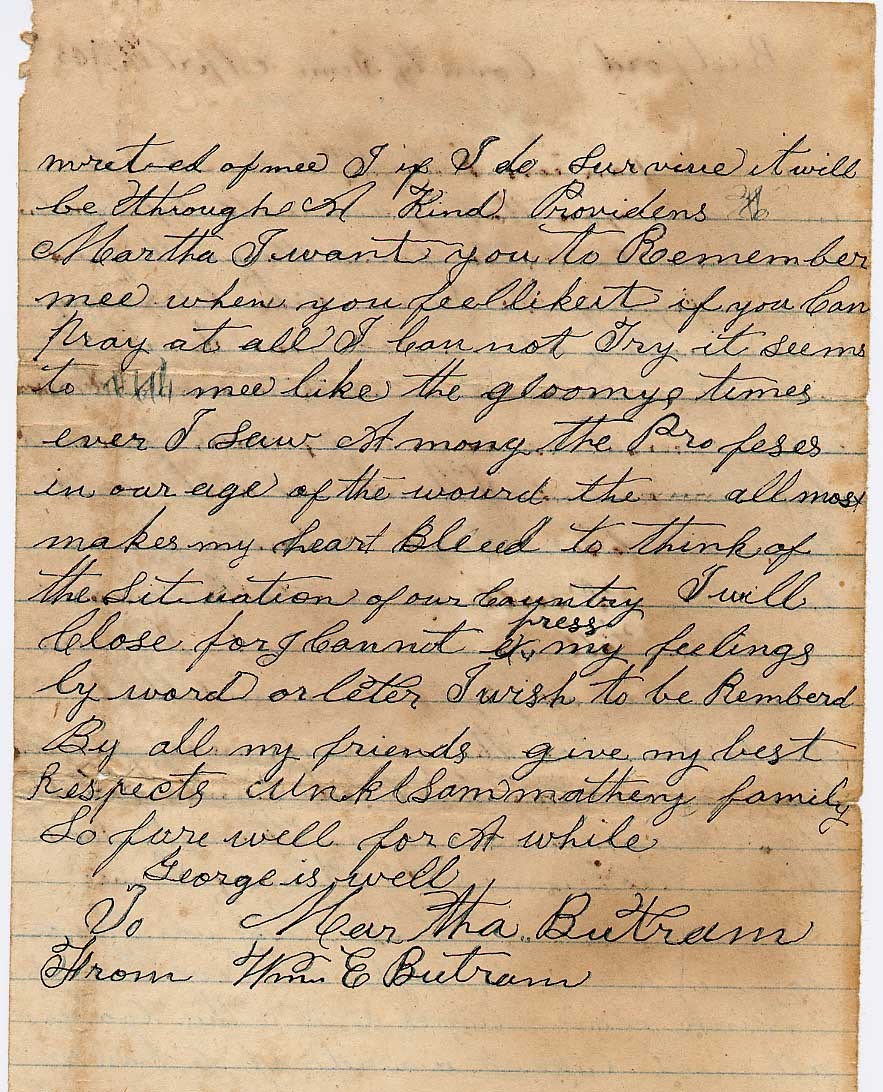 of mee I if I do Survive it will
be through A Kind Providens
Martha I want you to Remember
mee when you feel like it if you Can
Pray at all I Can not Try it seems
to mee like the gloomys times
ever I Saw A mong the Profeses
in our age of the wourd the all most
makes my heart Bleed to think of
the Situation of our Country I will
Close for I Cannot Ex press my feelings
by word or leter I wish to be Remberd
By all my friends give my best
Respects Unkl Sam matheny family
So fare well for A while
George is well
To Martha Butram
From Wm E Butram